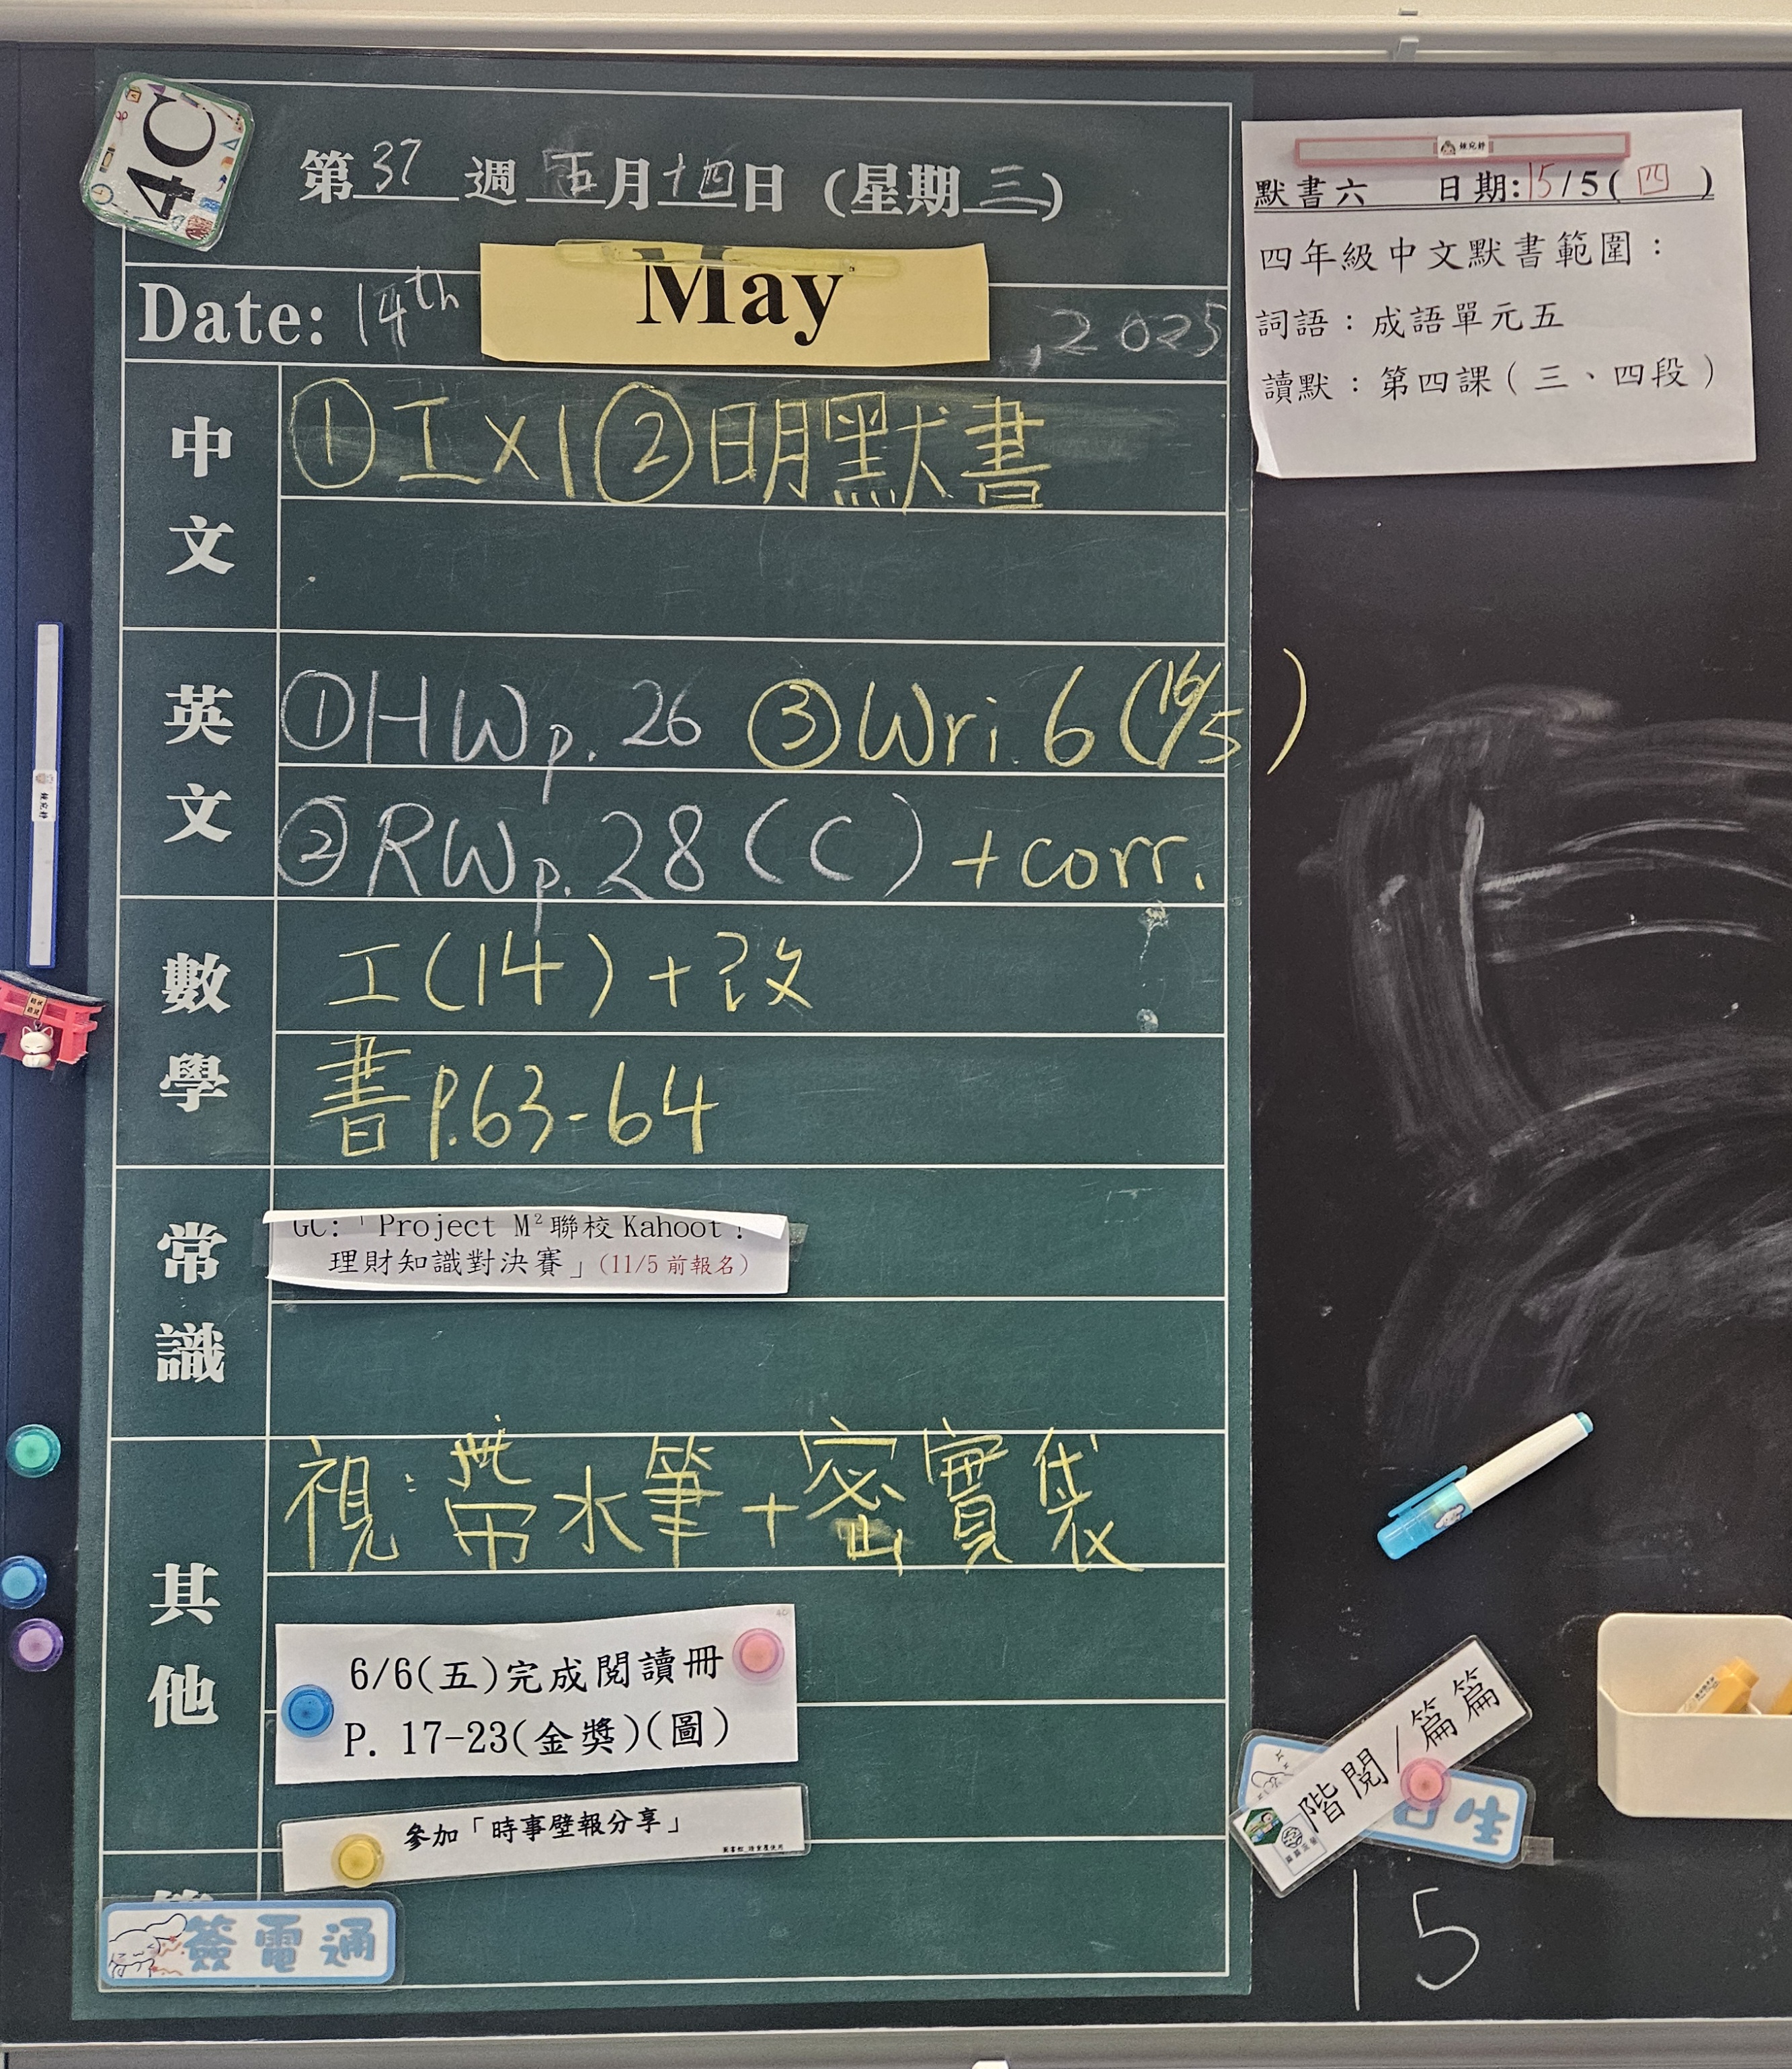 4C
第37週五月十四日(星期三)
Date: 14th May, 2025
中文
①工×1②明默書
英文
①HWp.26 ③Wri.6(16/5)
②RWp.28(C)+corr.
數學
工(14)+改
書P.63-64
常識
GC:「Project M²聯校Kahoot!
理財知識對決賽」(11/5前報名)
其他
視:帶水筆+密實袋
6/6(五)完成閱讀冊
P. 17-23(金獎)(圖)
參加「時事壁報分享」
簽電通
默書六 日期:15/5(四)
四年級中文默書範圍:
詞語:成語單元五
讀默:第四課(三、四段)
階閱/篇篇
日生
15